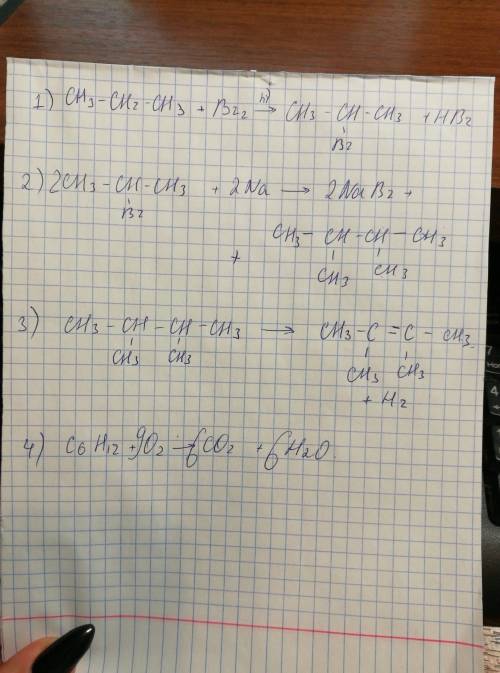 1) CH3-CH2-CH3 + Br2 hν→ CH3-CH-CH3 + HBr
Br
2) 2CH3-CH-CH3 + 2Na → 2NaBr +
Br
+ CH3-CH-CH-CH3
CH3 CH3
3) CH3-CH-CH-CH3 → CH3-C=C-CH3
CH3 CH3 CH3 CH3
+ H2
4) C6H12 + 9O2 → 6CO2 + 6H2O